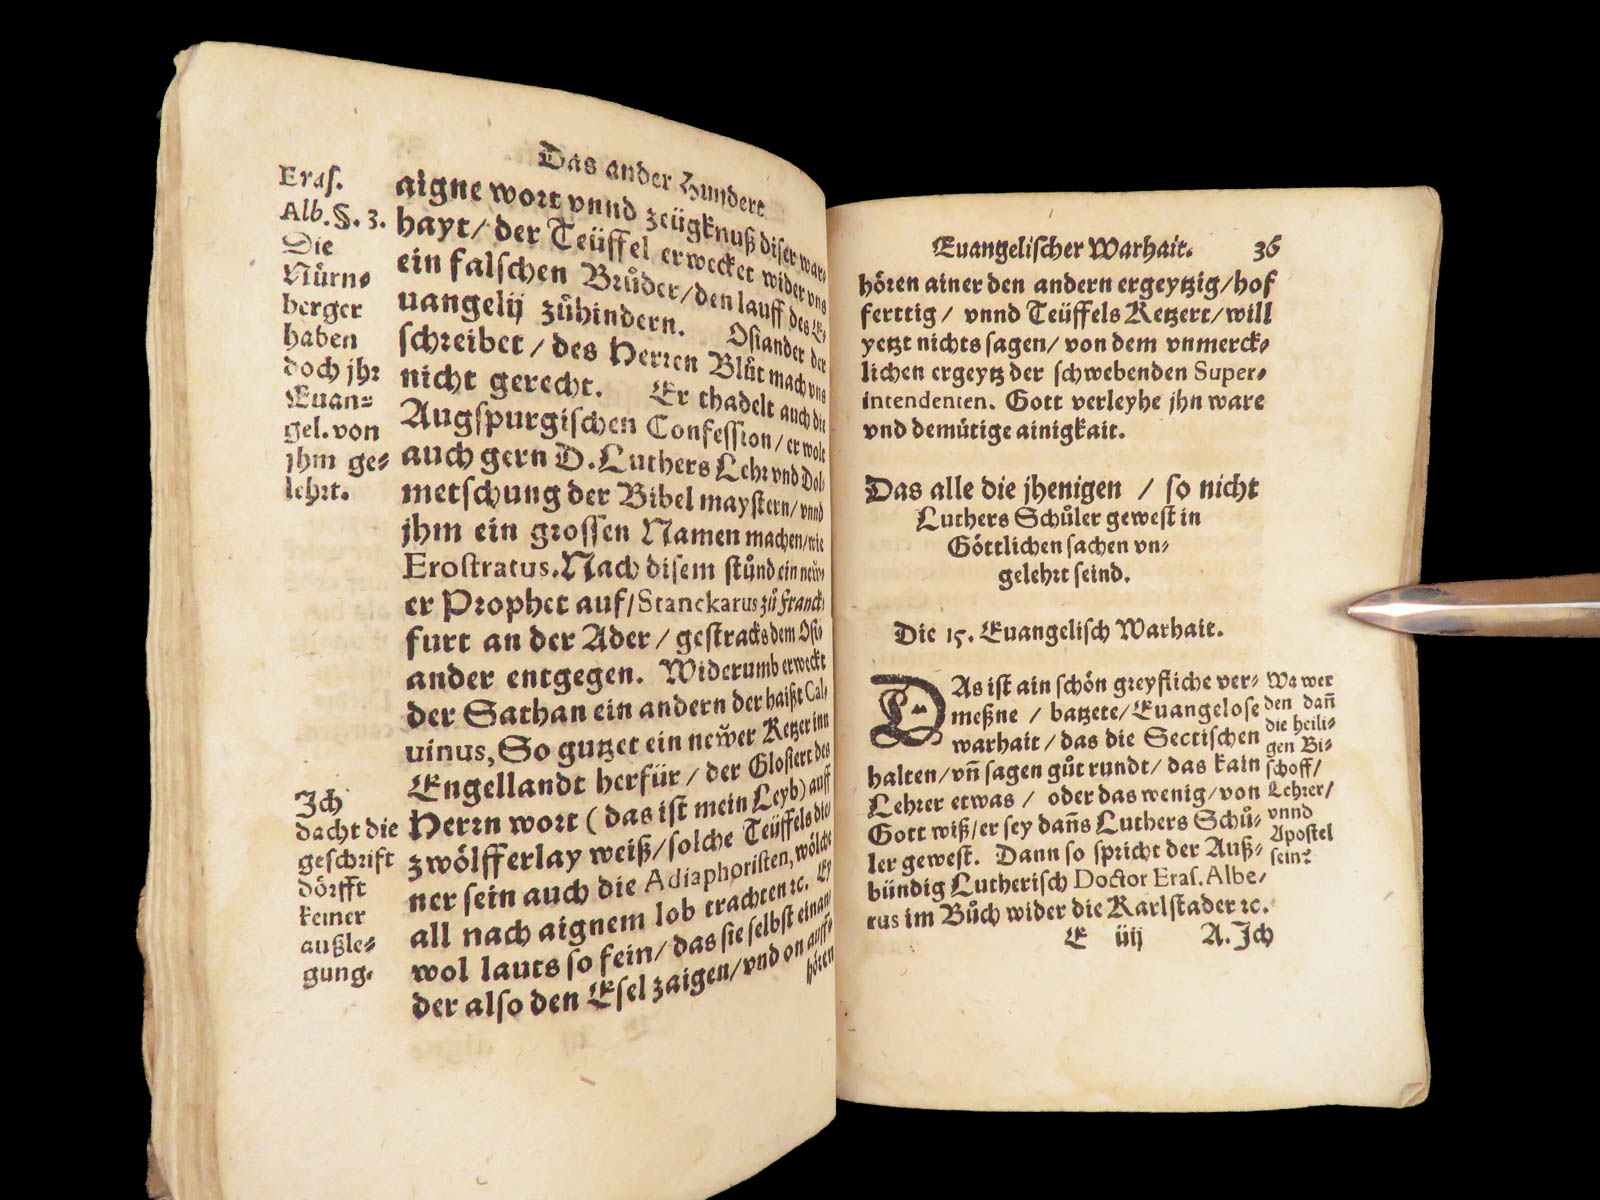 Das ander Hundert
Eraſ.
Alb. §. 3.
Die
Nürn⸗
berger
haben
doch jhr
Euan⸗
gel. von
jhm ge⸗
lehrt.
aigne wort vnnd zeügknuß diſer war⸗
hayt / der Teüffel erwecket wider vns
ein falſchen Bruͤder / den lauff des E⸗
uangelij zuͤhindern. Oſiander der
ſchreibet / des Herren Bluͤt mach vns
nicht gerecht. Er thadelt auch die
Augſpurgiſchen Confeſſion / er wolt
auch gern D. Luthers Lehr vnd Dol⸗
metſchung der Bibel mayſtern / vnnd
jhm ein groſſen Namen machen / wie
Eroſtratus. Nach diſem ſtuͤnd ein new⸗
er Prophet auf / Stanckarus zuͤ Franck⸗
furt an der Ader / geſtracks dem Oſi⸗
ander entgegen. Widerumb erweckt
der Sathan ein andern der haißt Cal⸗
uinus, So gutzet ein newer Ketzer inn
Engellandt herfür / der Gloſiert des
Herrn wort ( das iſt mein Leyb) auff
zwölfferlay weiß / ſolche Teüffels die⸗
ner ſein auch die Adiaphoriſten, wölche
all nach aignem lob trachten ꝛc. Ey
wol lauts ſo fein / das ſie ſelbſt einan⸗
der alſo den Eſel zaigen / vnd on auff⸗
hören
Ich
dacht die
geſchrift
dörfft
keiner
außle⸗
gung.
Euangeliſcher Warhait. 36
hören ainer den andern ergeytzig / hof
ferttig / vnnd Teüffels Ketzert / will
yetzt nichts ſagen / von dem vnmerck⸗
lichen ergeytz der ſchwebenden Super⸗
intendenten. Gott verleyhe jhn ware
vnd demütige ainigkait.
Das alle die jhenigen / ſo nicht
Luthers Schuͤler geweſt in
Göttlichen ſachen vn⸗
gelehrt ſeind.
Die 15. Euangeliſch Warhait.
DAs iſt ain ſchön greyfliche ver⸗
meßne / batzete / Euangeloſe
warhait / das die Sectiſchen
halten / vñ ſagen guͤt rundt / das kain
Lehrer etwas / oder das wenig / von
Gott wiß / er ſey dañs Luthers Schuͤ⸗
ler geweſt. Dann ſo ſpricht der Auß⸗
bündig Lutheriſch Doctor Eraſ. Albe⸗
rus im Buͤch wider die Karlſtader ꝛc.
Wa wer
den dañ
die heili⸗
gen Bi⸗
ſchoff /
Lehrer /
vnnd
Apoſtel
ſein?
E iiij A. Ich